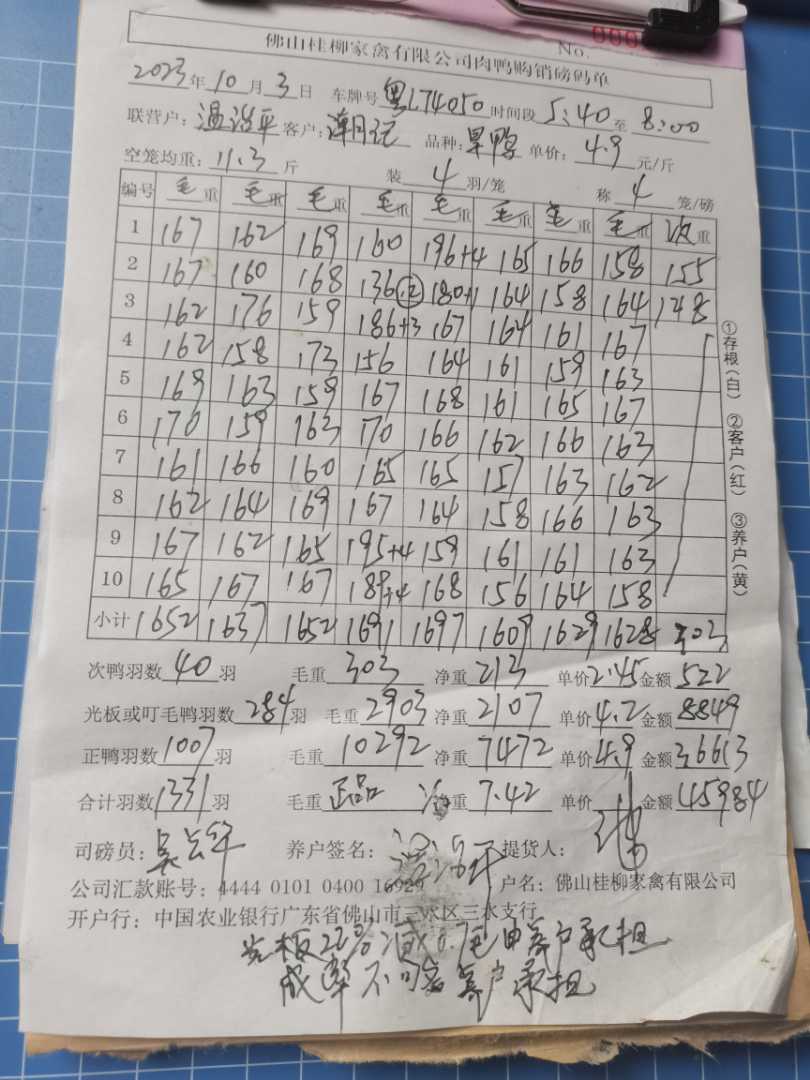 No. 000
佛山桂柳家禽有限公司肉鸭购销磅码单
2023年10月3日 车牌号粤L74050时间段5:40至8:00
联营户：温浩平 客户： 品种： 单价：4.9元/斤
空笼均重：11.3斤 装4羽/笼 称4笼/磅
编号 毛重 毛重 毛重 毛重 毛重 毛重 毛重 毛重 次重
1 167 162 169 160 196+4 165 166 158 155
2 167 160 168 136(12) 180+1 164 158 164 148
3 162 176 159 186+3 167 164 161 167
4 162 158 173 156 164 161 159 163
5 169 163 159 167 168 161 165 167
6 170 159 163 170 166 162 166 163
7 161 166 160 165 165 157 163 162
8 162 164 169 167 164 158 166 163
9 167 162 165 195+4 159 161 161 163
10 165 167 167 189+4 168 156 164 158
小计 1652 1637 1652 1691 1697 1609 1629 1628 303
次鸭羽数40羽 毛重303 净重213 单价2.45金额522
光板或叮毛鸭羽数284羽 毛重2903净重2107 单价4.2金额8849
正鸭羽数1007羽 毛重10292净重7472 单价4.9金额36613
合计羽数1331羽 毛重正品 净重7.42 单价 金额45984
司磅员： 养户签名： 提货人：
公司汇款账号：4444 0101 0400 16929 户名：佛山桂柳家禽有限公司
开户行：中国农业银行广东省佛山市三水区三水支行
光板22%减0.7毛由养户承担
成率不 养户承担
①存根（白） ②客户（红） ③养户（黄）